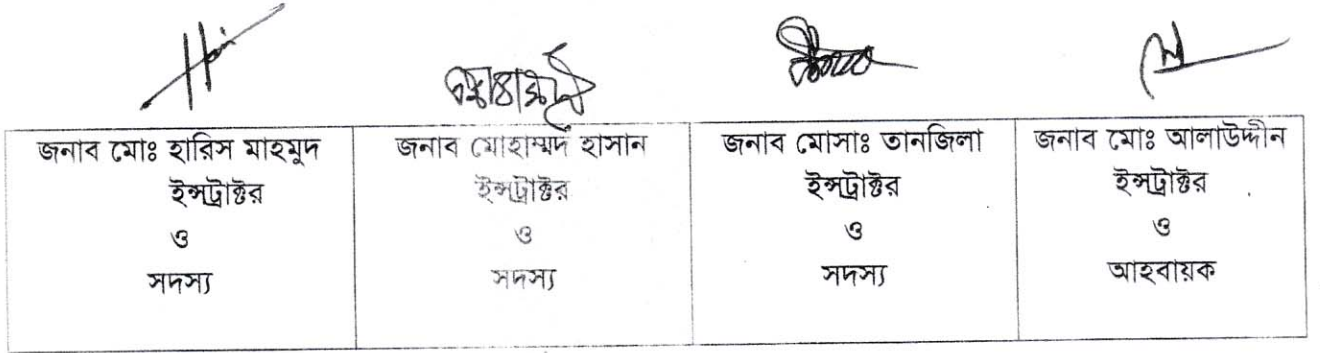 জনাব মোঃ হারিস মাহমুদ
ইন্সট্রাক্টর
ও
সদস্য
জনাব মোহাম্মদ হাসান
ইন্সট্রাক্টর
ও
সদস্য
জনাব মোসাঃ তানজিলা
ইন্সট্রাক্টর
ও
সদস্য
জনাব মোঃ আলাউদ্দীন
ইন্সট্রাক্টর
ও
আহবায়ক